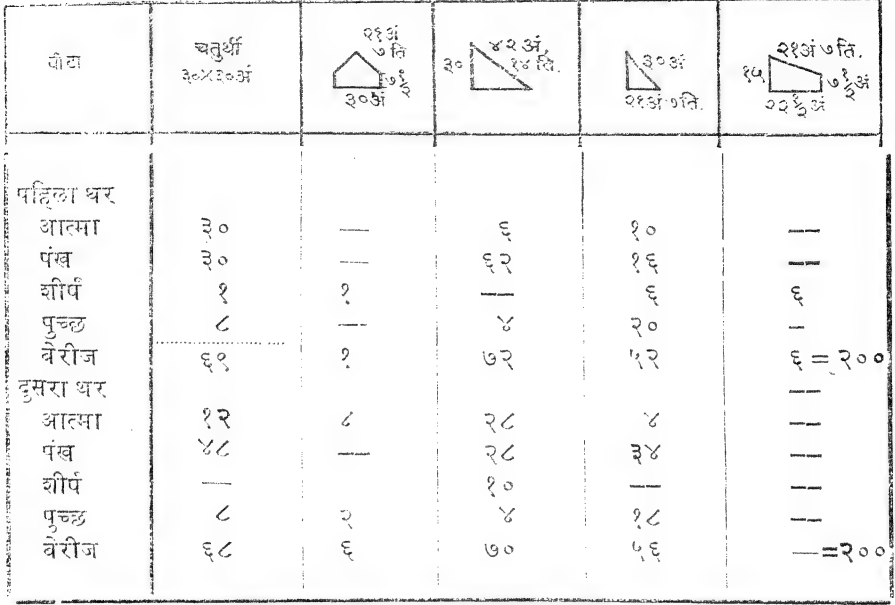 वीटा चतुर्थी ३०×३०अं २१अं ७ ति ७½ ३०अं ३० ४२ अं, १४ ति. ३०अं २१अं७ति. १५ २१अं ७ति. ७½अं २२½अं
पहिला थर
आत्मा ३० — ६ १० —
पंख ३० — ६२ १६ —
शीर्ष १ १ — ६ ६
पुच्छ ८ — ४ २० –
बेरीज ६९ १ ७२ ५२ ६ = २००
दुसरा थर —
आत्मा १२ ८ २८ ४ —
पंख ४८ — २८ ३४ —
शीर्ष — १० — —
पुच्छ ८ २ ४ १८ —
बेरीज ६८ ६ ७० ५६ —=२००